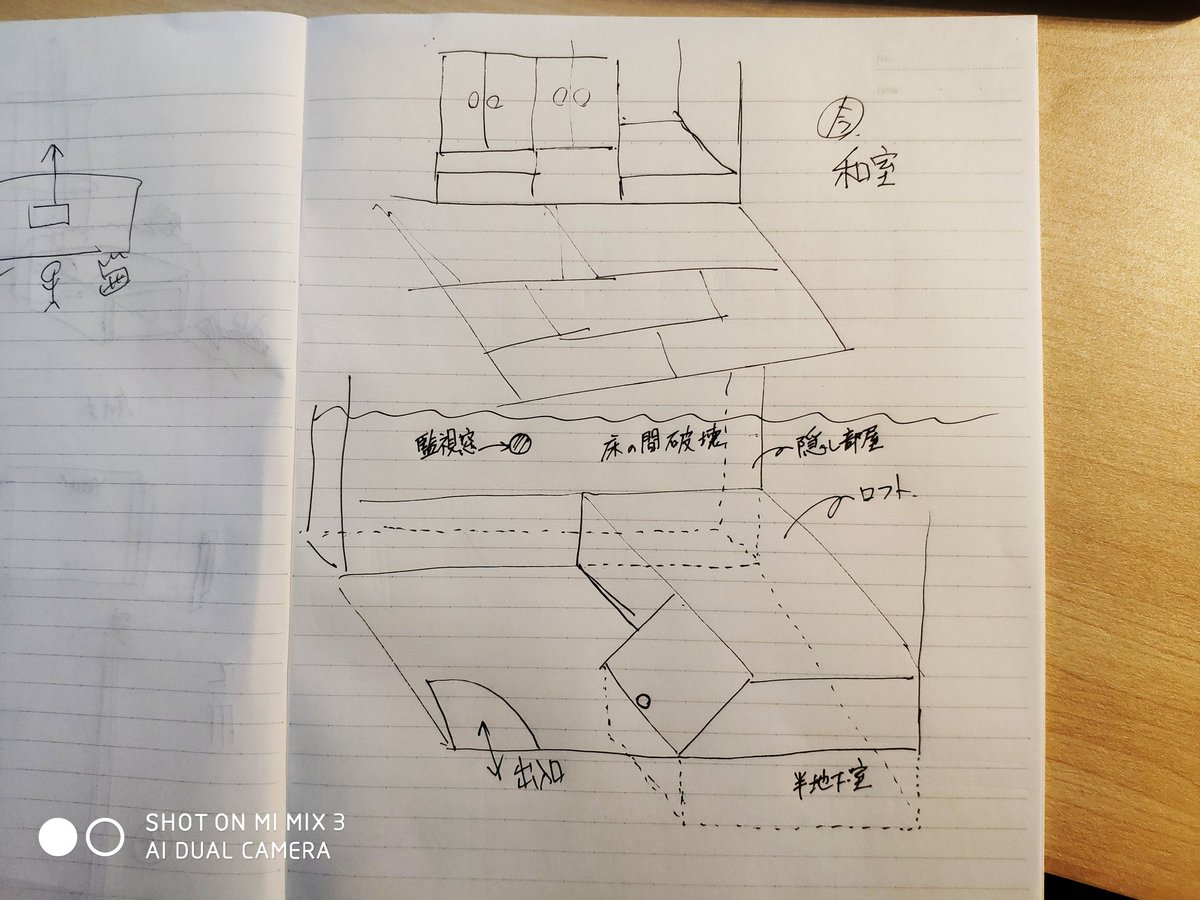 No.
Date
和室
監視窓
床の間破壊
隠し部屋
ロフト
出入口
半地下室
SHOT ON MI MIX 3
AI DUAL CAMERA